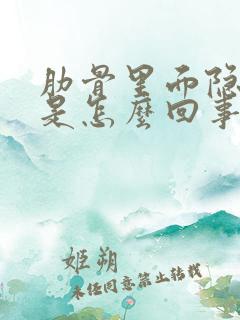 肋骨里面隐
是怎么回事
姬朔
未经同意禁止转载